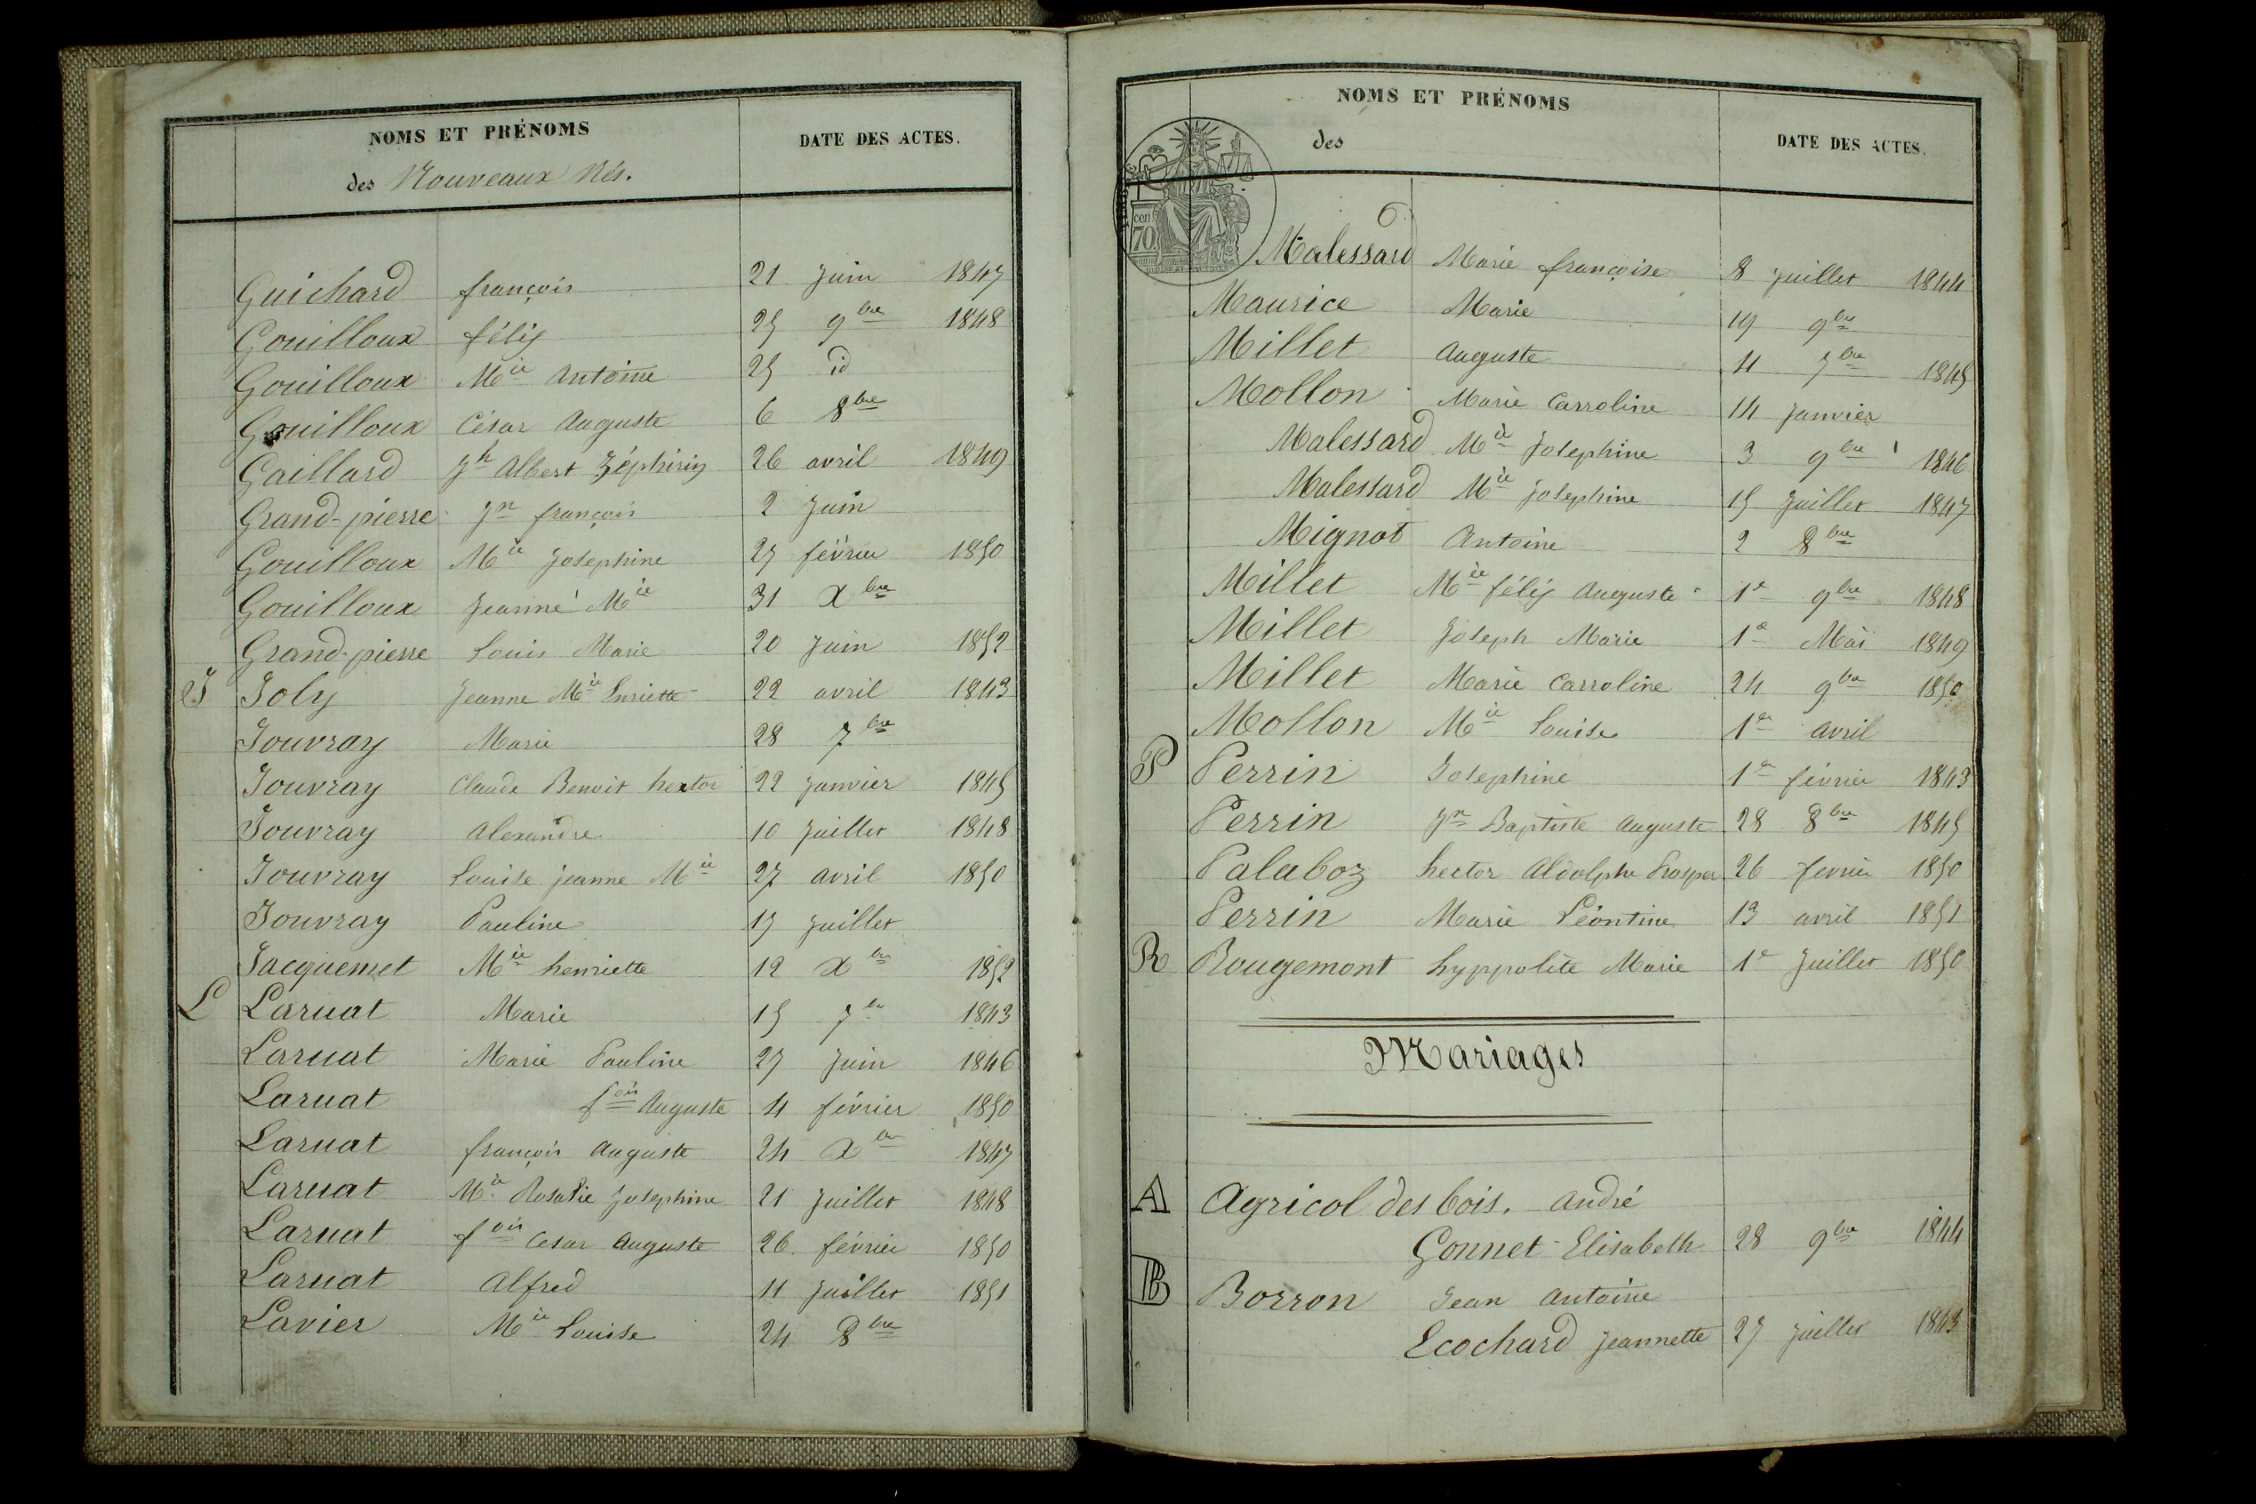 NOMS ET PRÉNOMS
DATE DES ACTES.
des Nouveaux Nés.
Guichard françois 21 Juin 1847
Gouilloux félix 25 9bre 1848
Gouilloux Mie Antoine 25 id
Gouilloux César Auguste 6 8bre
Gaillard Jh Albert Zéphirin 26 avril 1849
Grand-pierre Jn françois 2 Juin
Gouilloux Mie Josephine 27 février 1850
Gouilloux Jeanne Mie 31 Xbre
Grand-pierre Louis Marie 20 Juin 1852
J Joly Jeanne Mie Enriette 22 avril 1843
Jouvray Marie 28 7bre
Jouvray Claude Benoit hector 22 Janvier 1845
Jouvray Alexandre 10 Juillet 1848
Jouvray Louise jeanne Mie 27 avril 1850
Jouvray Pauline 17 Juillet
Jacquemet Mie henriette 12 Xbre 1852
L Laruat Marie 15 7bre 1843
Laruat Marie Pauline 27 Juin 1846
Laruat fois Auguste 4 février 1850
Laruat françois Auguste 24 Xbre 1847
Laruat Mie Rosalie Josephine 21 Juillet 1848
Laruat fois Cesar Auguste 26 février 1850
Laruat Alfred 11 Juillet 1851
Lavier Mie Louise 24 8bre
NOMS ET PRÉNOMS
DATE DES ACTES.
des
cen
70
Malessard Marie françoise 8 Juillet 1844
Maurice Marie 19 9bre
Millet Auguste 4 7bre 1845
Mollon Marie Carroline 14 Janvier
Malessard Mie Josephine 3 9bre 1846
Malessard Mie Josephine 15 Juillet 1847
Mignot Antoine 2 8bre
Millet Mie félix Auguste 1er 9bre 1848
Millet Joseph Marie 1er Mai 1849
Millet Marie Carroline 24 9bre 1850
Mollon Mie Louise 1er avril
P Perrin Josephine 1er février 1843
Perrin Jn Baptiste Auguste 28 8bre 1845
Palaboz hector Aldolphe Prosper 26 fevrier 1850
Perrin Marie Léontine 13 avril 1851
R Rougemont hyppolite Marie 1er Juillet 1850
Mariages
A Agricol des bois. André
Gonnet Elisabeth 28 9bre 1844
B Borron Jean Antoine
Ecochard Jeannette 27 Juillet 1843